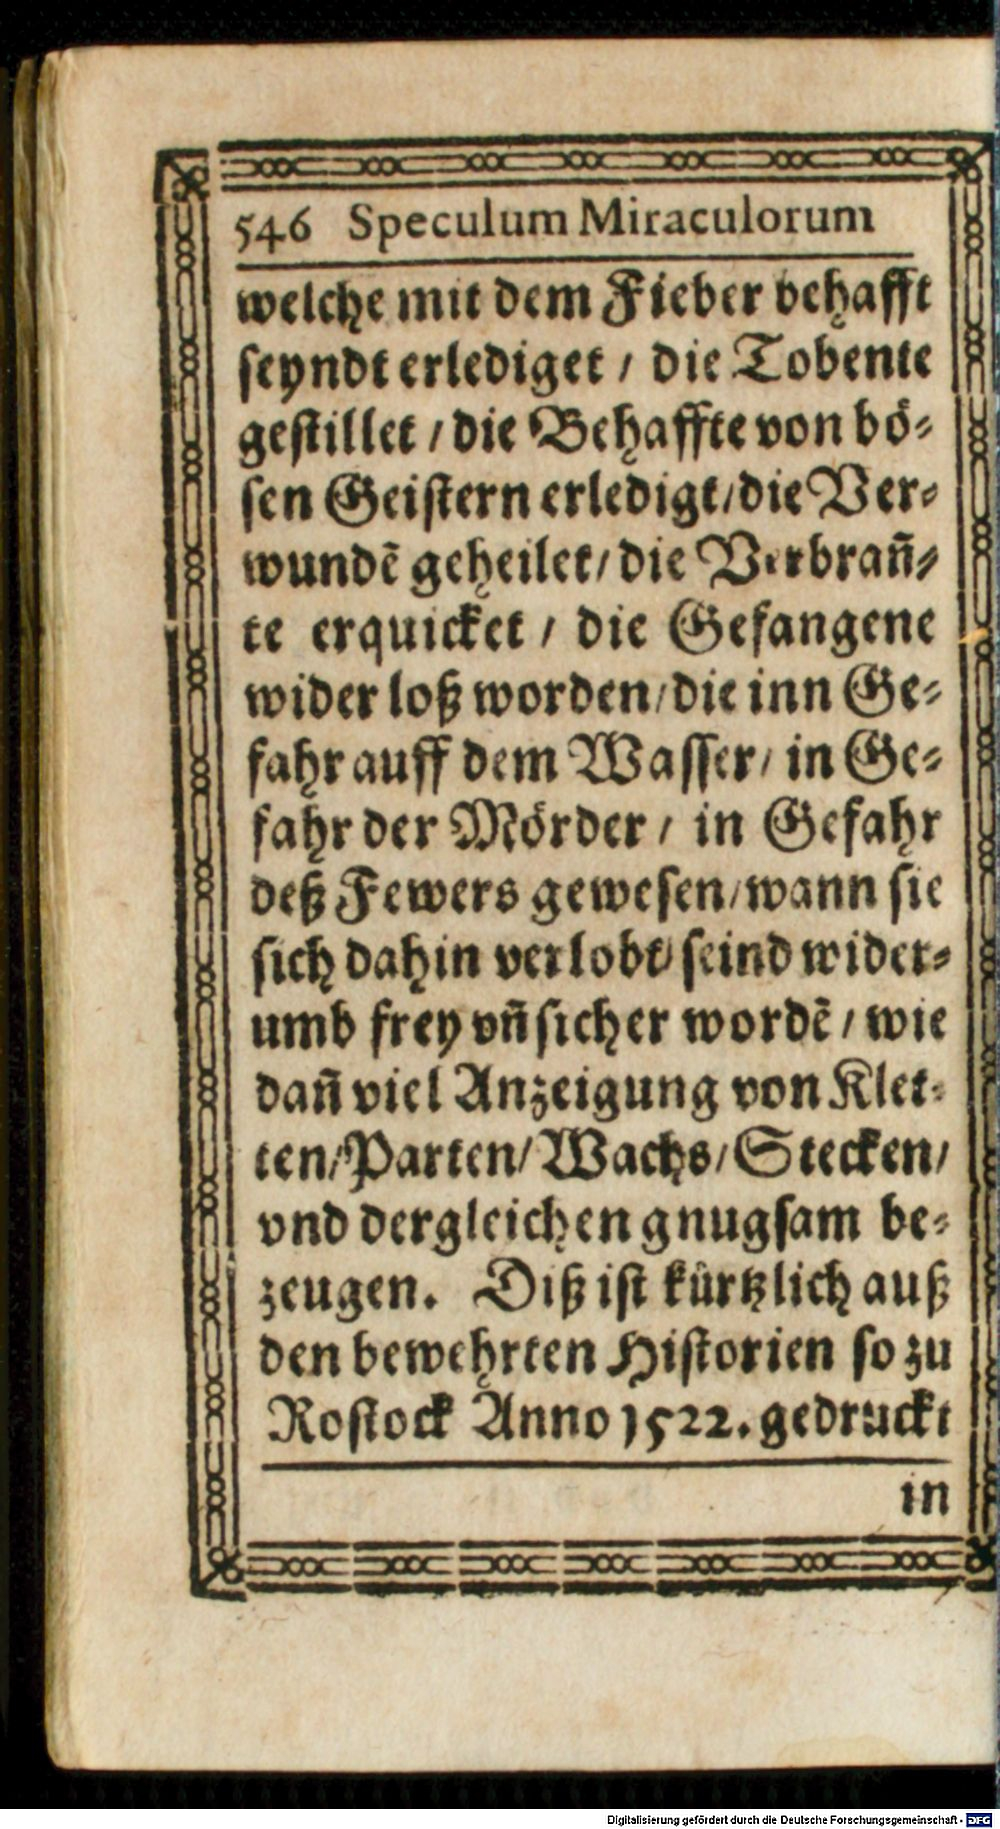 546 Speculum Miraculorum
welche mit dem Fieber behafft
seyndt erlediget / die Tobente
gestillet / die Behaffte von bö-
sen Geistern erledigt / die Ver-
wundẽ geheilet / die Verbrañ-
te erquicket / die Gefangene
wider loß worden / die inn Ge-
fahr auff dem Wasser / in Ge-
fahr der Mörder / in Gefahr
deß Fewers gewesen / wann sie
sich dahin verlobt / seind wider-
umb frey vñ sicher wordẽ / wie
dañ viel Anzeigung von Klet-
ten / Parten / Wachs / Stecken /
vnd dergleichen gnugsam be-
zeugen. Diß ist kürtzlich auß
den bewehrten Historien so zu
Rostock Anno 1522. gedruckt
in
Digitalisierung gefördert durch die Deutsche Forschungsgemeinschaft - DFG